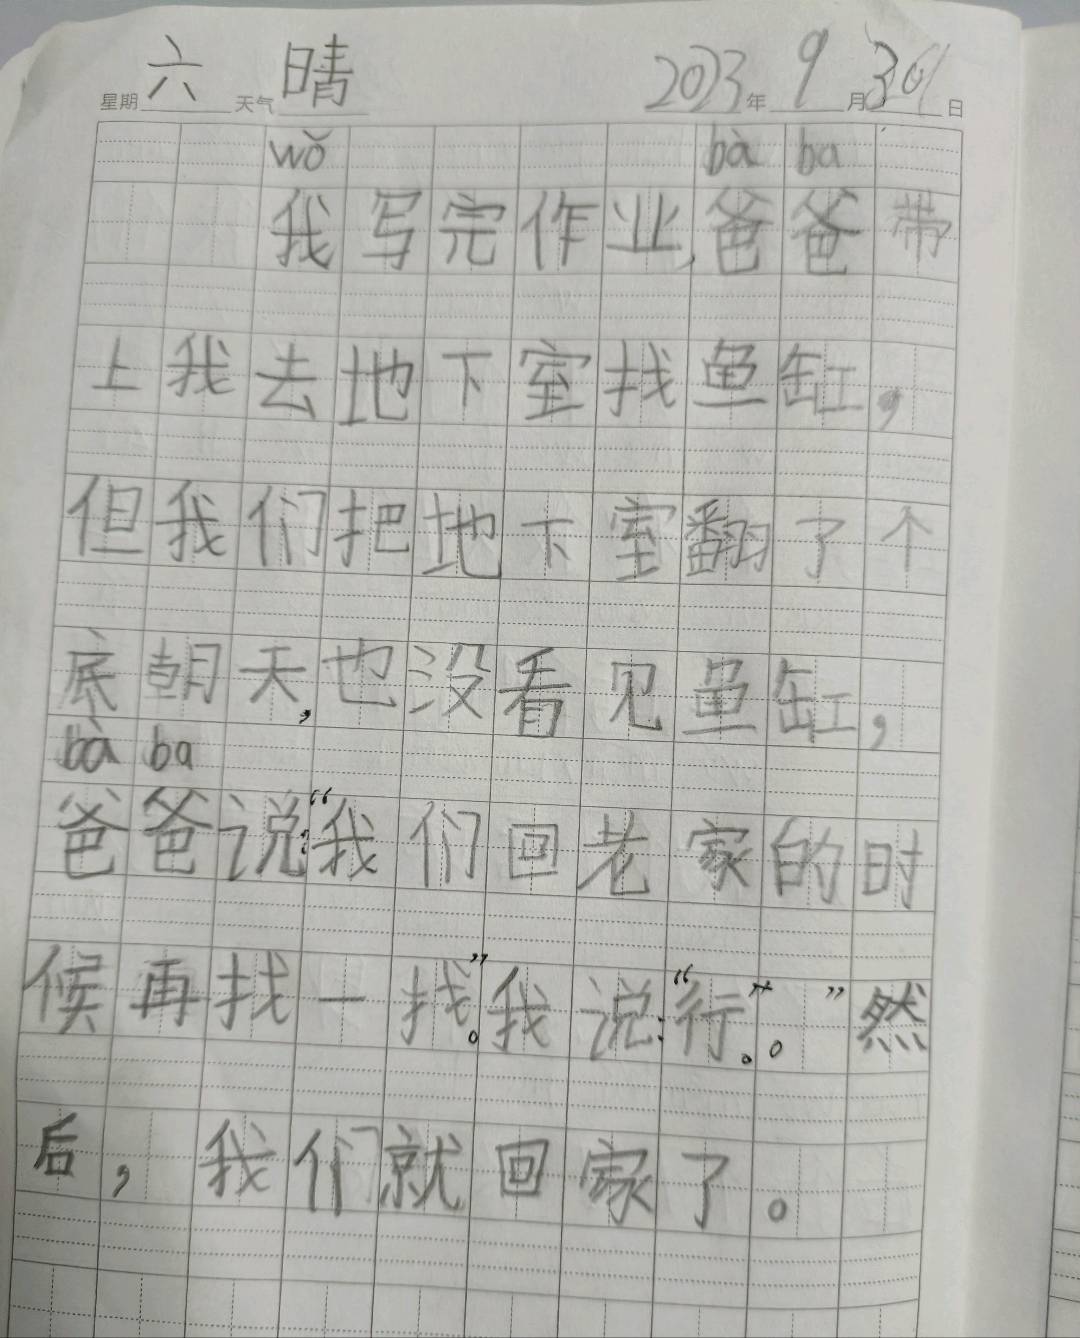 星期六 天气晴 2023年9月30日
wǒ bà ba
我写完作业,爸爸带
上我去地下室找鱼缸,
但我们把地下室翻了个
底朝天,也没看见鱼缸,
bà ba
爸爸说:“我们回老家的时
候再找一找。”我说:“行。”。”然
后,我们就回家了。